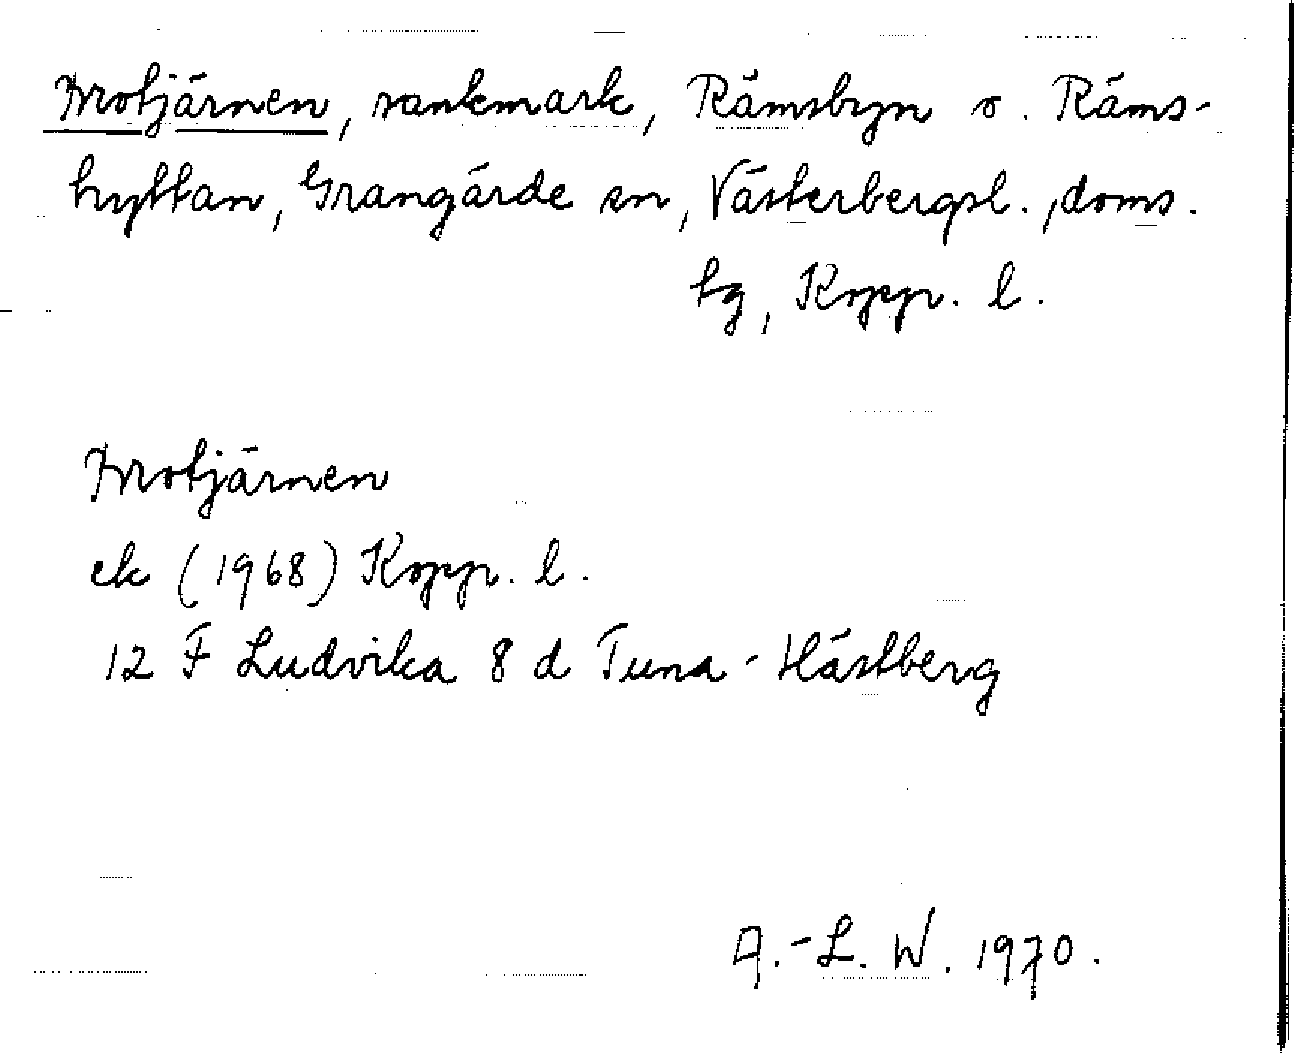 Motjärnen, sankmark, Rämsbyn o. Räms-
hyttan, Grangärde sn, Västerbergsl., doms.
tg, Kopp. l.
Motjärnen
ek (1968) Kopp. l.
12 F Ludvika 8 d Tuna-Hästberg
A.-L. W. 1970.